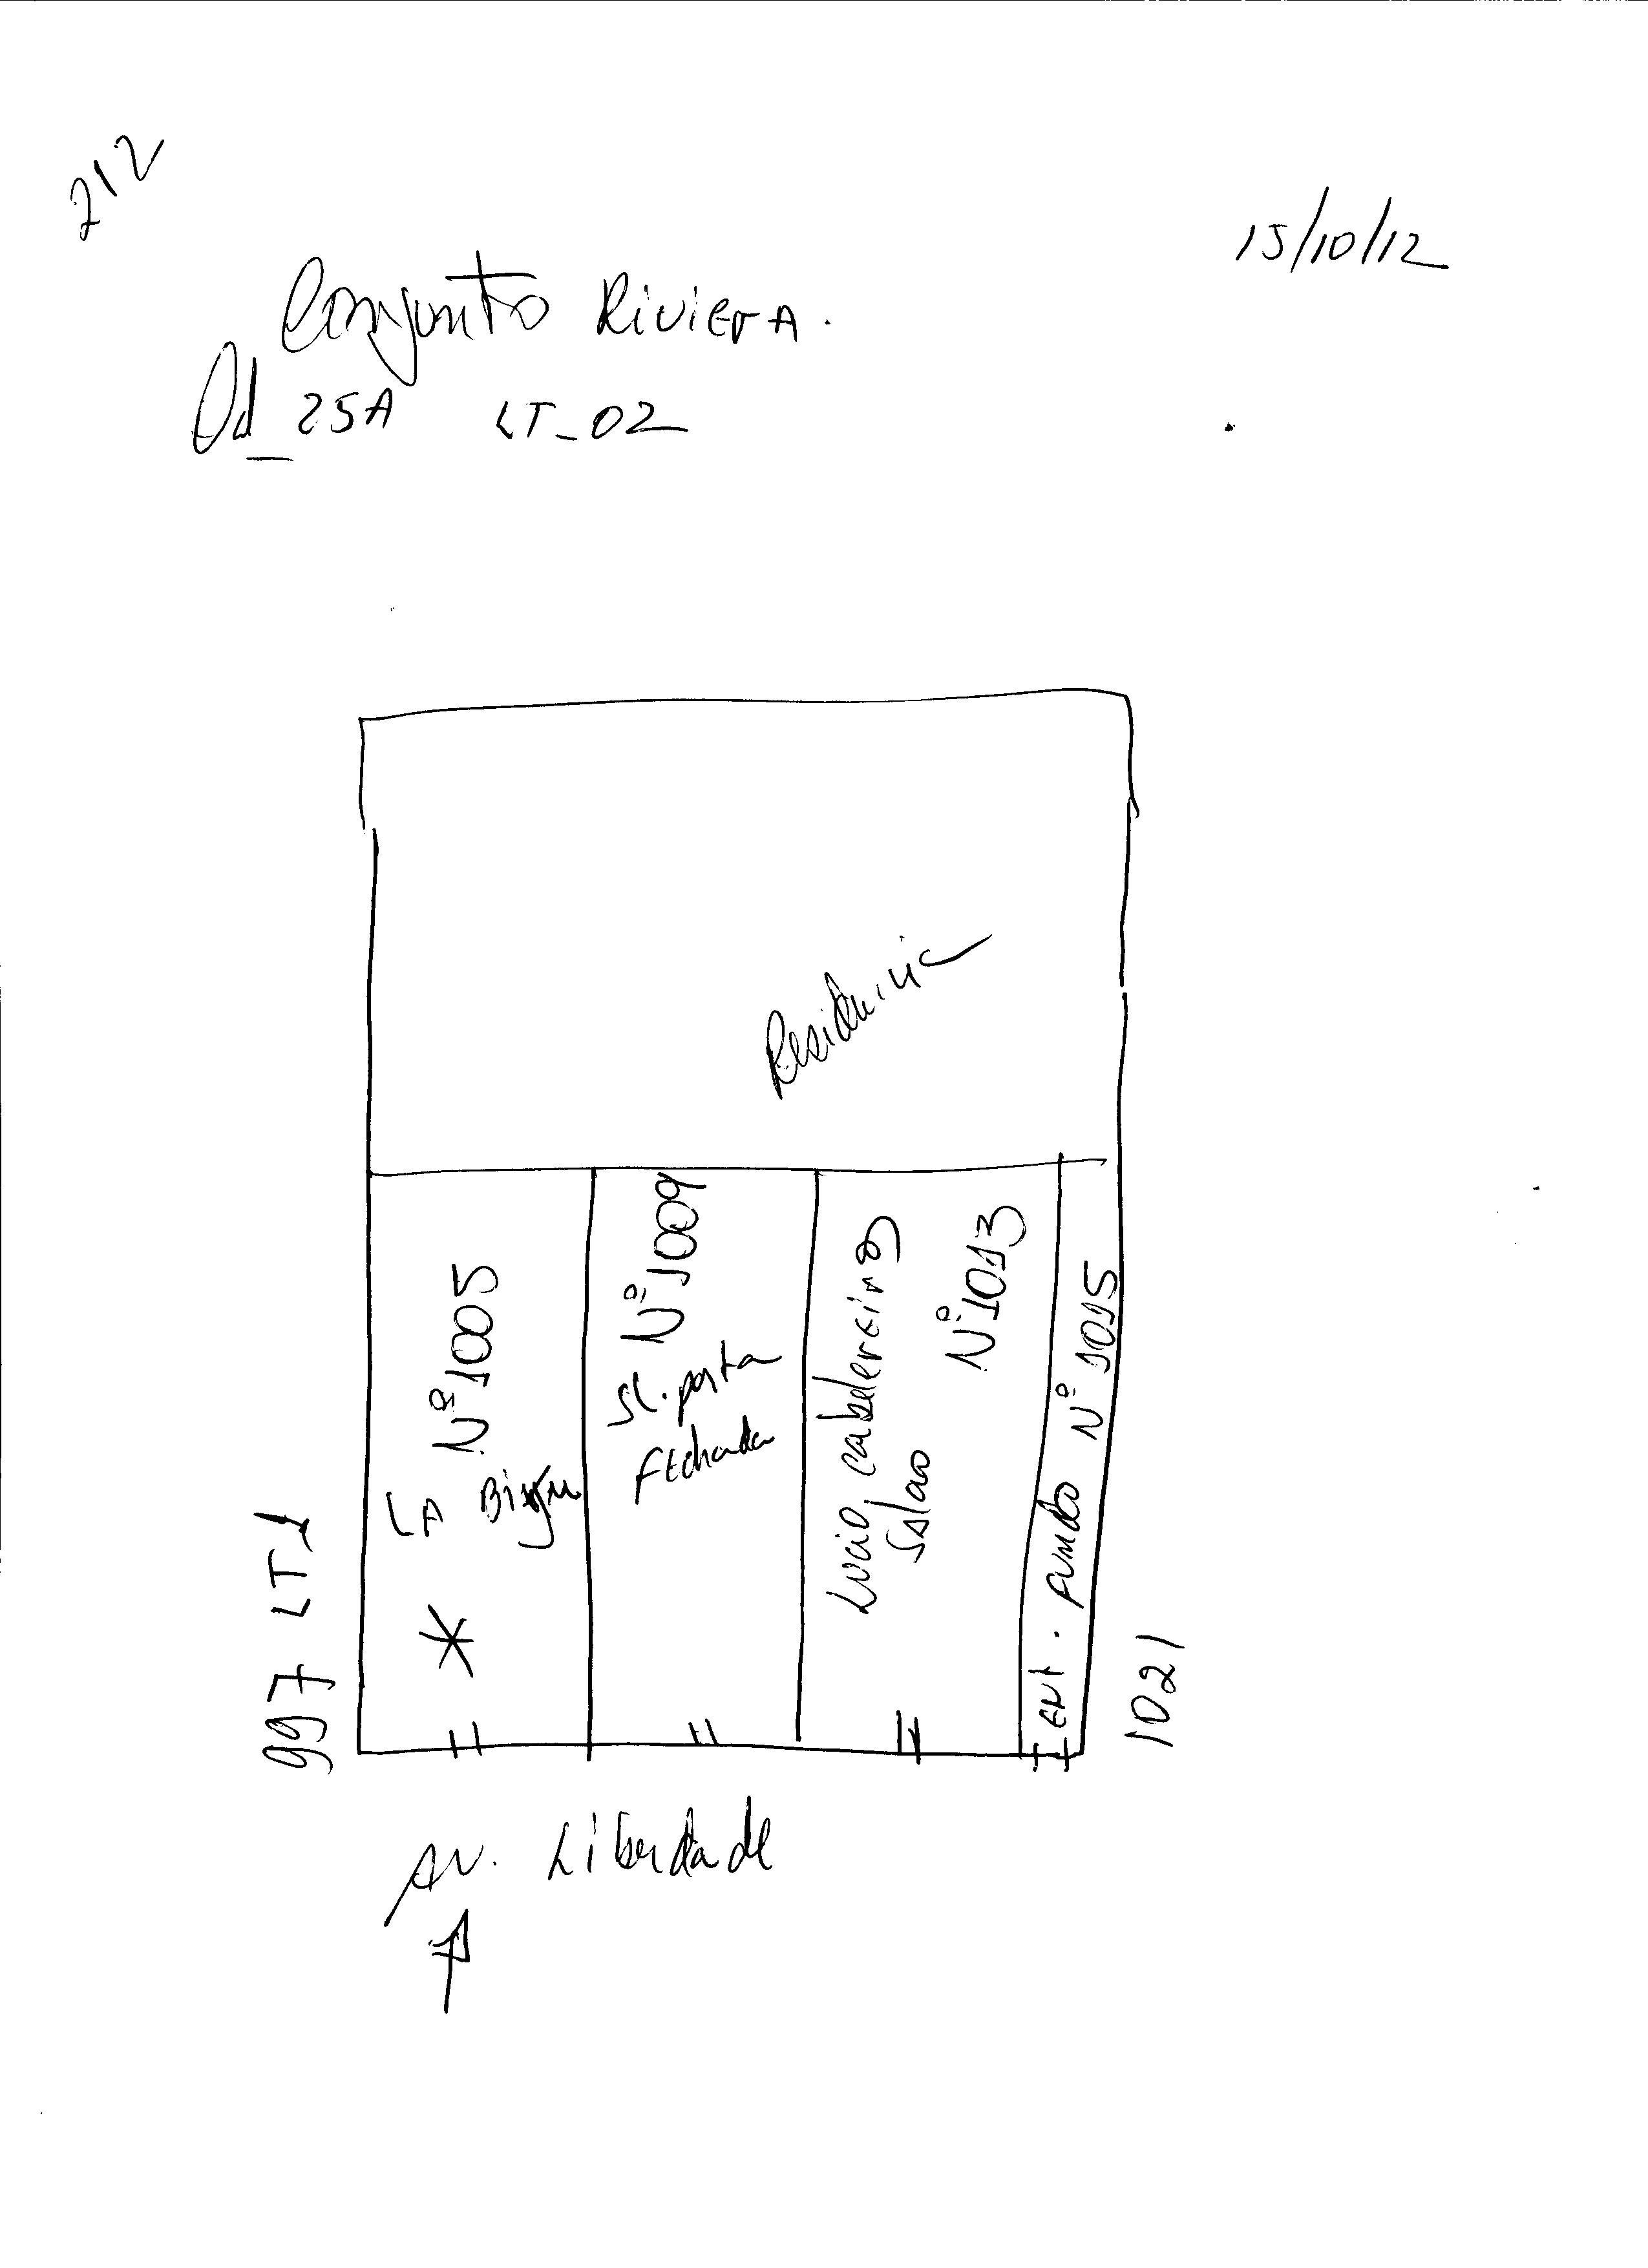 212
15/10/12
Conjunto Riviera.
Qd_25A LT_02
Residencia
Nº 1005
La
Nº 1009
Sl. porta
fechada
Nº 1013
Lucio cabelereiro
salao
Ent. fundo Nº 1015
997 LT1
1021
Av. Liberdade